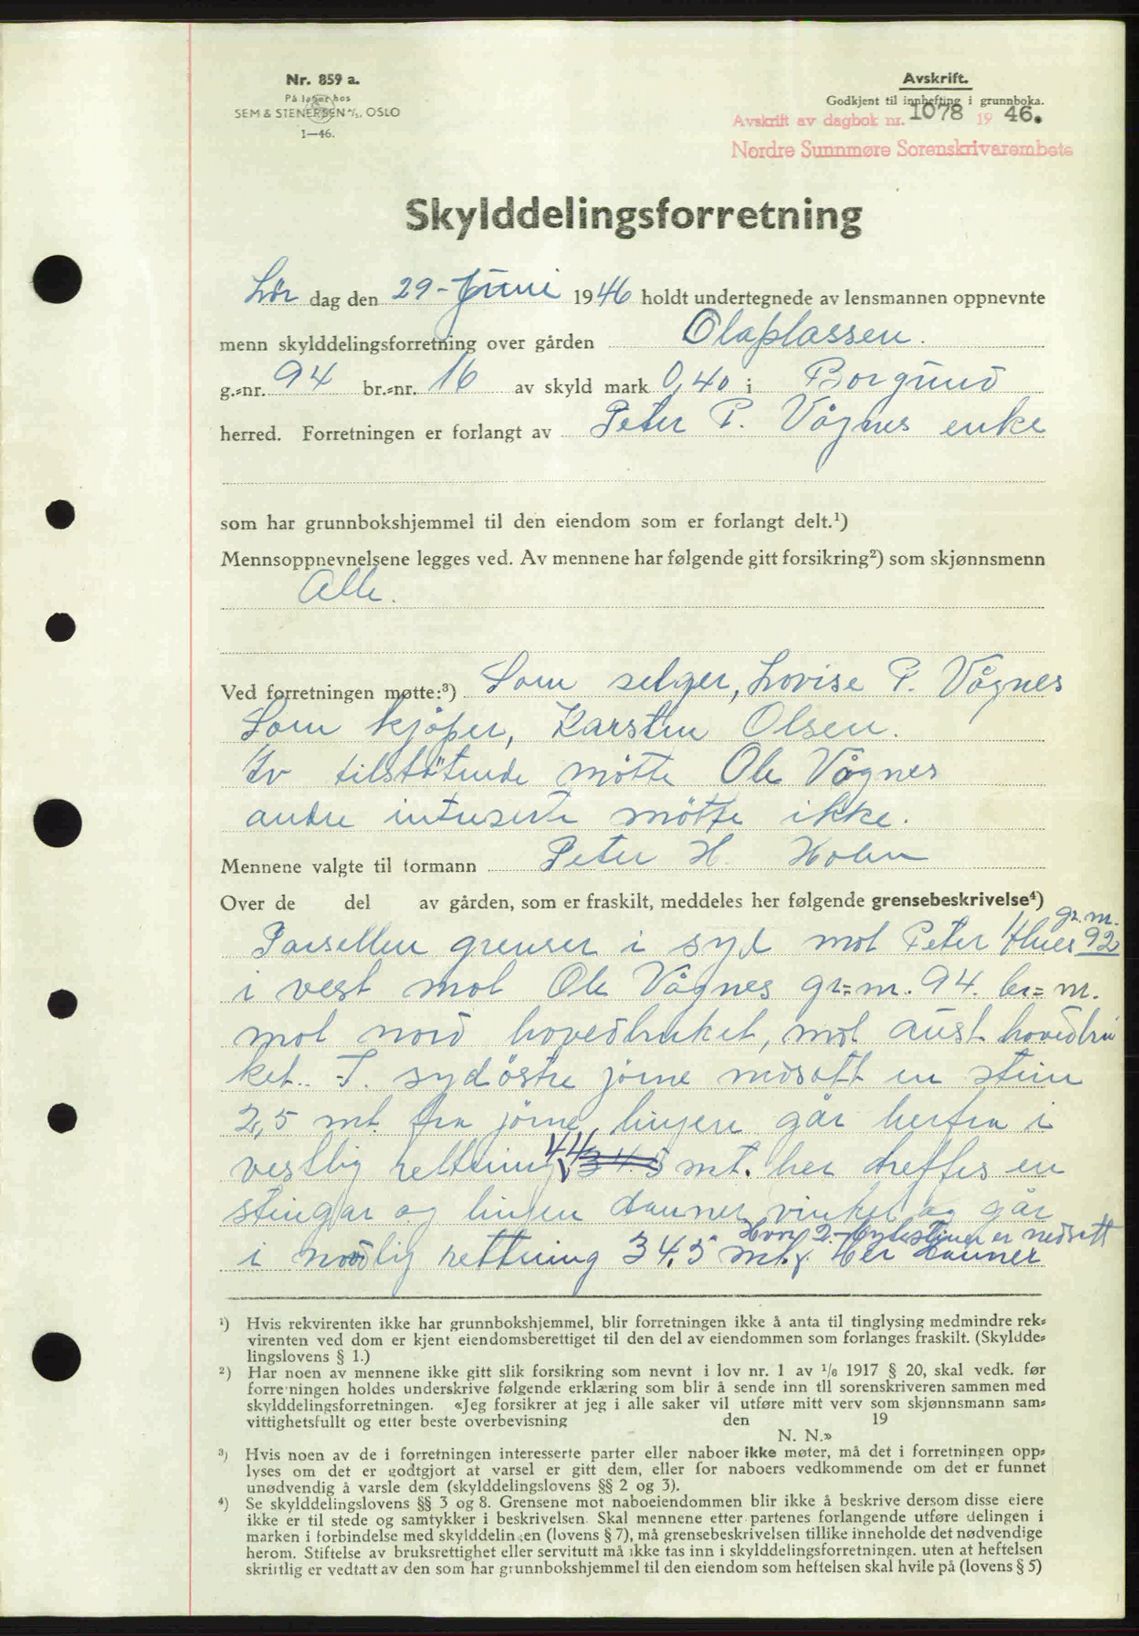 Nr. 859 a.
På lager hos
SEM & STENERSEN A/S, OSLO
1—46.
Avskrift.
Godkjent til innhefting i grunnboka.
Avskrift av dagbok nr. 1078 1946.
Nordre Sunnmøre Sorenskrivarembete
Skylddelingsforretning
Lör dag den 29-Juni 1946 holdt undertegnede av lensmannen oppnevnte
menn skylddelingsforretning over gården Olaplassen.
g.=nr. 94 br.=nr. 16 av skyld mark 0,40 i Borgund
herred. Forretningen er forlangt av Peter P. Vågnes enke
som har grunnbokshjemmel til den eiendom som er forlangt delt.¹)
Mennsoppnevnelsene legges ved. Av mennene har følgende gitt forsikring²) som skjønnsmenn
Alle.
Ved forretningen møtte:³) Som selger, Lovise P. Vågnes
Som kjöper, Karsten Olsen.
Av tilstötende mötte Ole Vågnes
andre intreserte mötte ikke.
Mennene valgte til formann Peter H. Holen
Over de del av gården, som er fraskilt, meddeles her følgende grensebeskrivelse⁴)
gr. nr.
Parsellen grenser i syd mot Peter 92
i vest mot Ole Vågnes gr=nr. 94. br= nr.
mot nord hovedbruket, mot aust hovedbru
ket. I. sydöstre jörne nedsatt en stein
2,5 mt. fra jörne, linjen går herfra i
vestlig rettning 44 34.5 mt. her treffes en
steingar og linjen danner vinkel og går
Hvor 2. bytestiner er nedsatt
i nordlig rettning 34,5 mt. Her danner
¹) Hvis rekvirenten ikke har grunnbokshjemmel, blir forretningen ikke å anta til tinglysing medmindre rek=
virenten ved dom er kjent eiendomsberettiget til den del av eiendommen som forlanges fraskilt. (Skyldde=
lingslovens § 1.)
²) Har noen av mennene ikke gitt slik forsikring som nevnt i lov nr. 1 av ¹/₆ 1917 § 20, skal vedk. før
forretningen holdes underskrive følgende erklæring som blir å sende inn til sorenskriveren sammen med
skylddelingsforretningen. «Jeg forsikrer at jeg i alle saker vil utføre mitt verv som skjønnsmann sam=
vittighetsfullt og etter beste overbevisning den 19
N. N.»
³) Hvis noen av de i forretningen interesserte parter eller naboer ikke møter, må det i forretningen opp=
lyses om det er godtgjort at varsel er gitt dem, eller for naboers vedkommende om det er funnet
unødvendig å varsle dem (skylddelingslovens §§ 2 og 3).
⁴) Se skylddelingslovens §§ 3 og 8. Grensene mot naboeiendommen blir ikke å beskrive dersom disse eiere
ikke er til stede og samtykker i beskrivelsen. Skal mennene etter partenes forlangende utføre delingen i
marken i forbindelse med skylddelingen (lovens § 7), må grensebeskrivelsen tillike inneholde det nødvendige
herom. Stiftelse av bruksrettighet eller servitutt må ikke tas inn i skylddelingsforretningen. uten at heftelsen
skriftlig er vedtatt av den som har grunnbokshjemmel til den eiendom som heftelsen skal hvile på (lovens § 5)